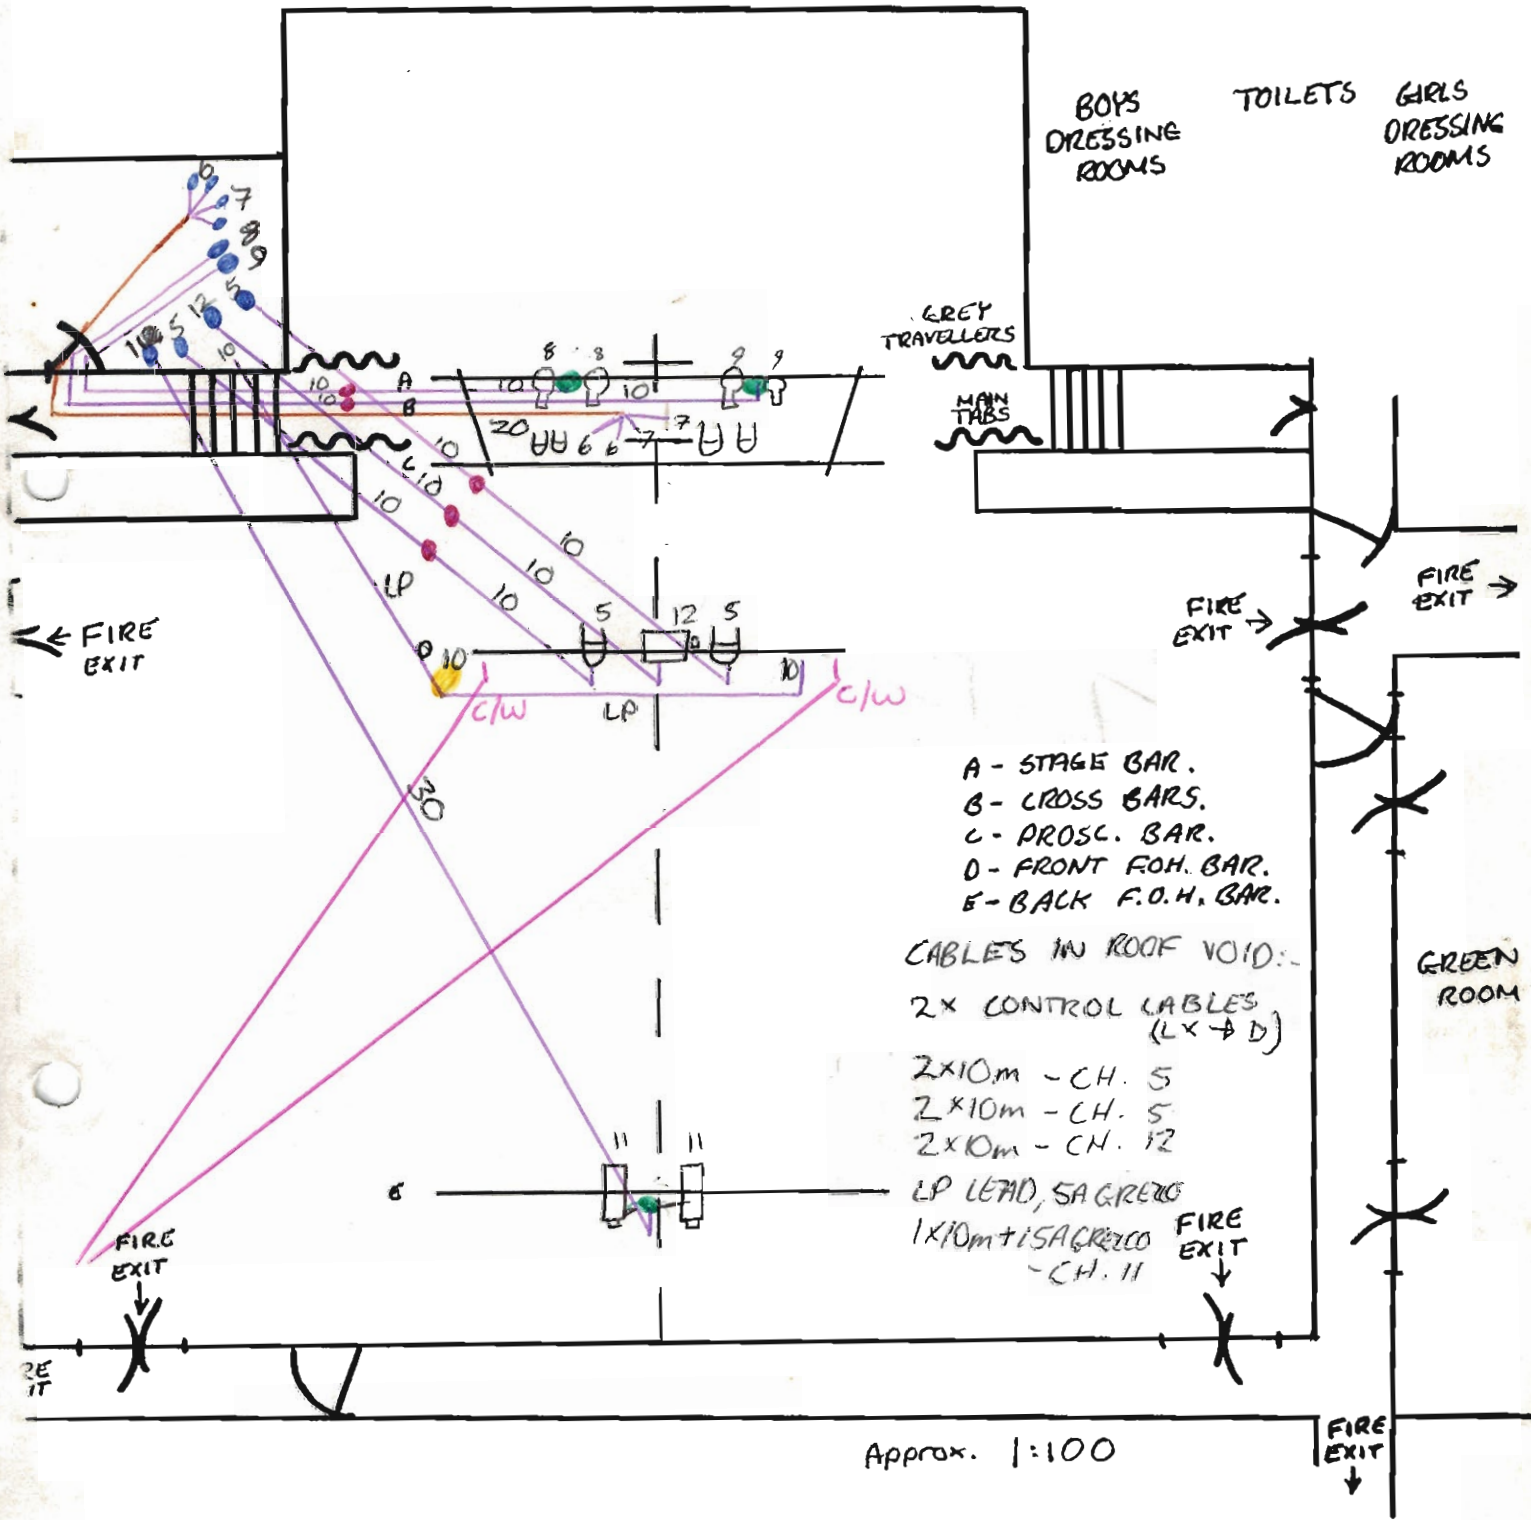 BOYS
DRESSING
ROOMS
TOILETS
GIRLS
DRESSING
ROOMS
6
7
8
9
5
12
5
10
GREY
TRAVELLERS
MAIN
TABS
8
8
9
9
10
A
10
10
10
B
20
6
6
7
7
C
10
10
10
10
10
10
LP
FIRE
EXIT
FIRE
EXIT
FIRE
EXIT
D
10
5
12
5
10
C/W
LP
C/W
30
A - STAGE BAR.
B - CROSS BARS.
C - PROSC. BAR.
D - FRONT F.O.H. BAR.
E - BACK F.O.H. BAR.
CABLES IN ROOF VOID:-
2X CONTROL CABLES
(LX → D)
2X10m - CH. 5
2X10m - CH. 5
2X10m - CH. 12
LP LEAD, 5A GRELCO
1X10m + 15A GRELCO
- CH. 11
GREEN
ROOM
11
11
E
FIRE
EXIT
FIRE
EXIT
RE
IT
FIRE
EXIT
Approx. 1:100